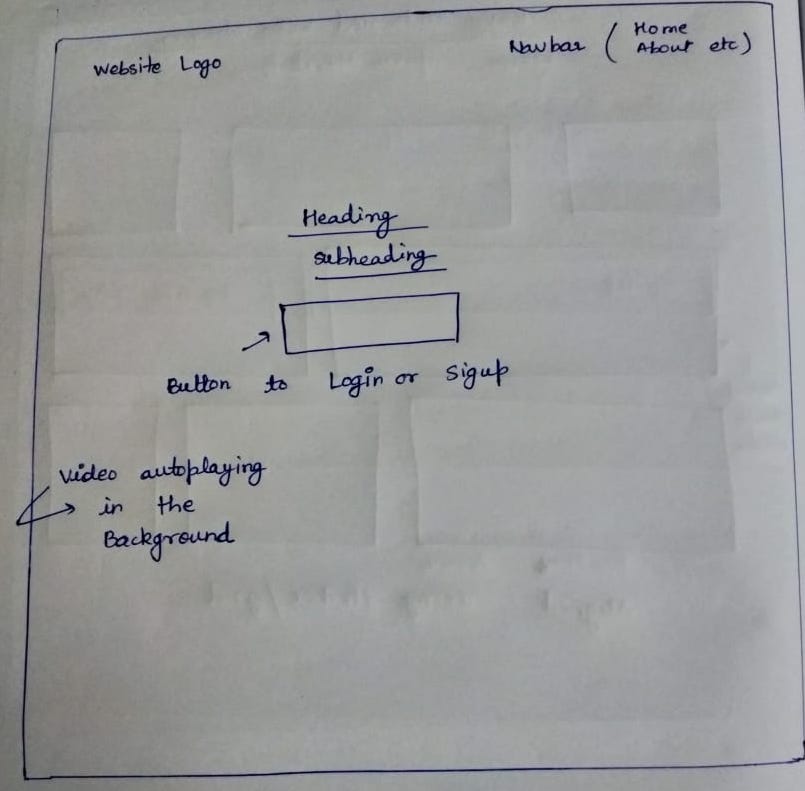 Website Logo
Navbar ( Home
About etc)
Heading
subheading
Button to Login or Sigup
Video autoplaying
in the
Background